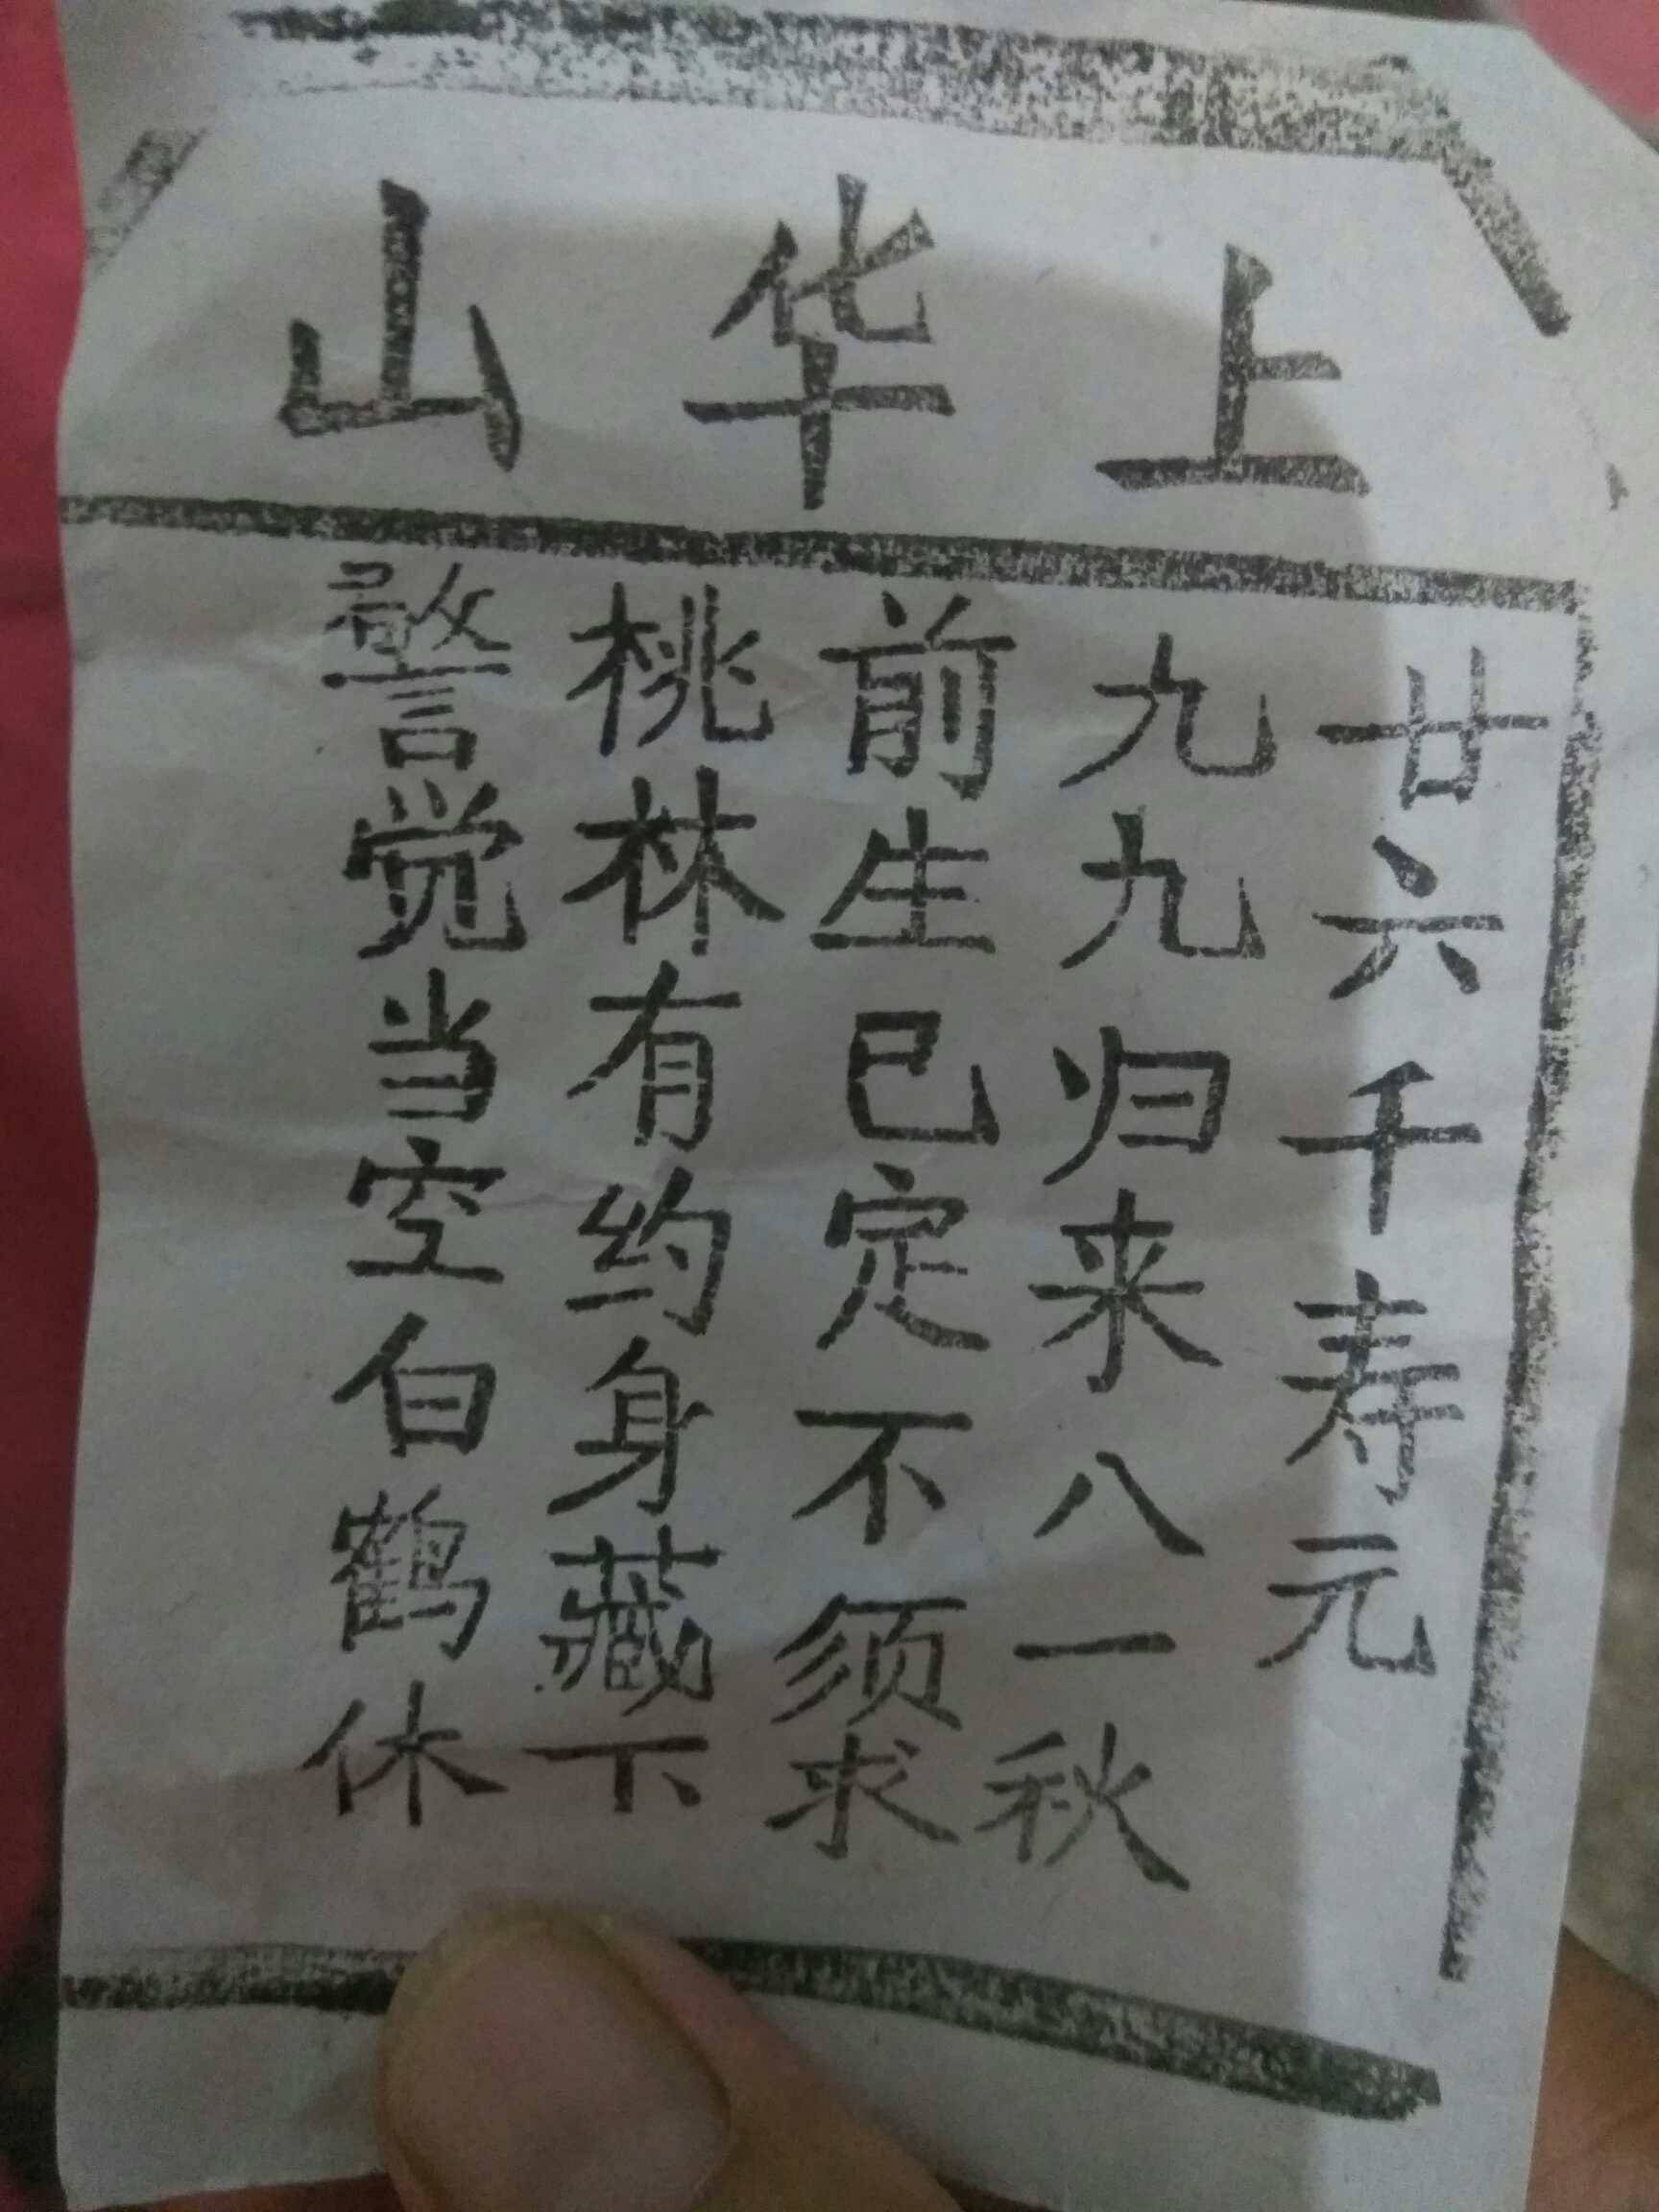 上华山
廿六千寿元
九九归来八一秋
前生已定不须求
桃林有约身藏下
警觉当空白鹤休